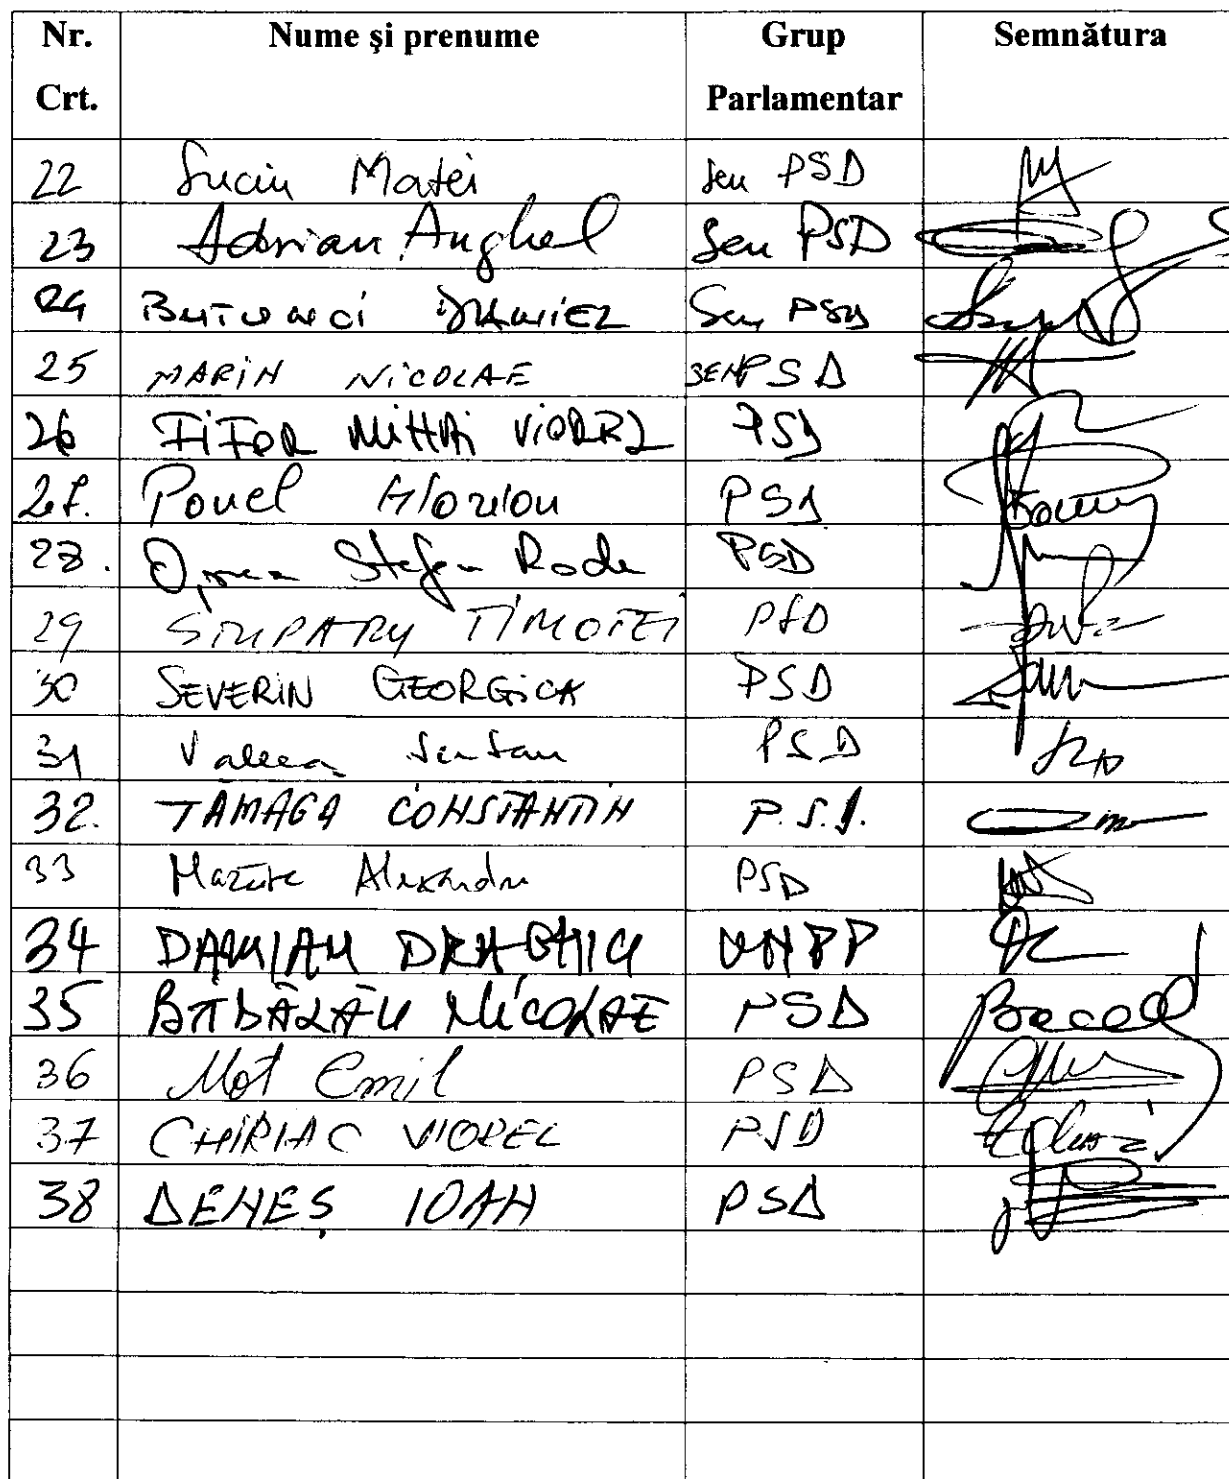 Nr. Crt. Nume şi prenume Grup Parlamentar Semnătura
22 Suciu Matei Sen PSD
23 Adrian Anghel Sen PSD
24 Butunoi Daniel Sen PSD
25 MARIN NICOLAE SEN PSD
26 FIFOR MIHAI VIOREL PSD
27. Pavel Marian PSD
28. Oprea Stefan Radu PSD
29 STUPARU TIMOTEI PSD
30 SEVERIN GEORGICA PSD
31 Valeca Serban PSD
32. TAMAGA CONSTANTIN P.S.D.
33 Mazăre Alexandru PSD
34 DAMIAN DRAGHICI UNPP
35 BĂDĂLĂU NICOLAE PSD
36 Mot Emil PSD
37 CHIRIAC VIOREL PSD
38 DENEŞ IOAN PSD